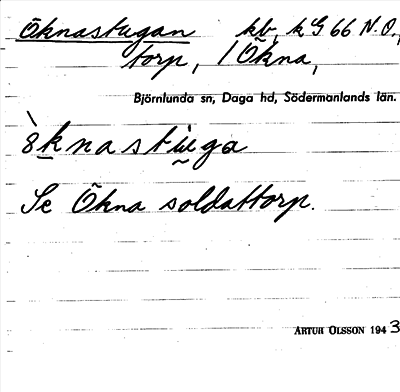 Öknastugan kb, k G 66 N.O.,
torp, / Ökna,
Björnlunda sn, Daga hd, Södermanlands län.
Se Ökna soldattorp.
ARTUR OLSSON 1943